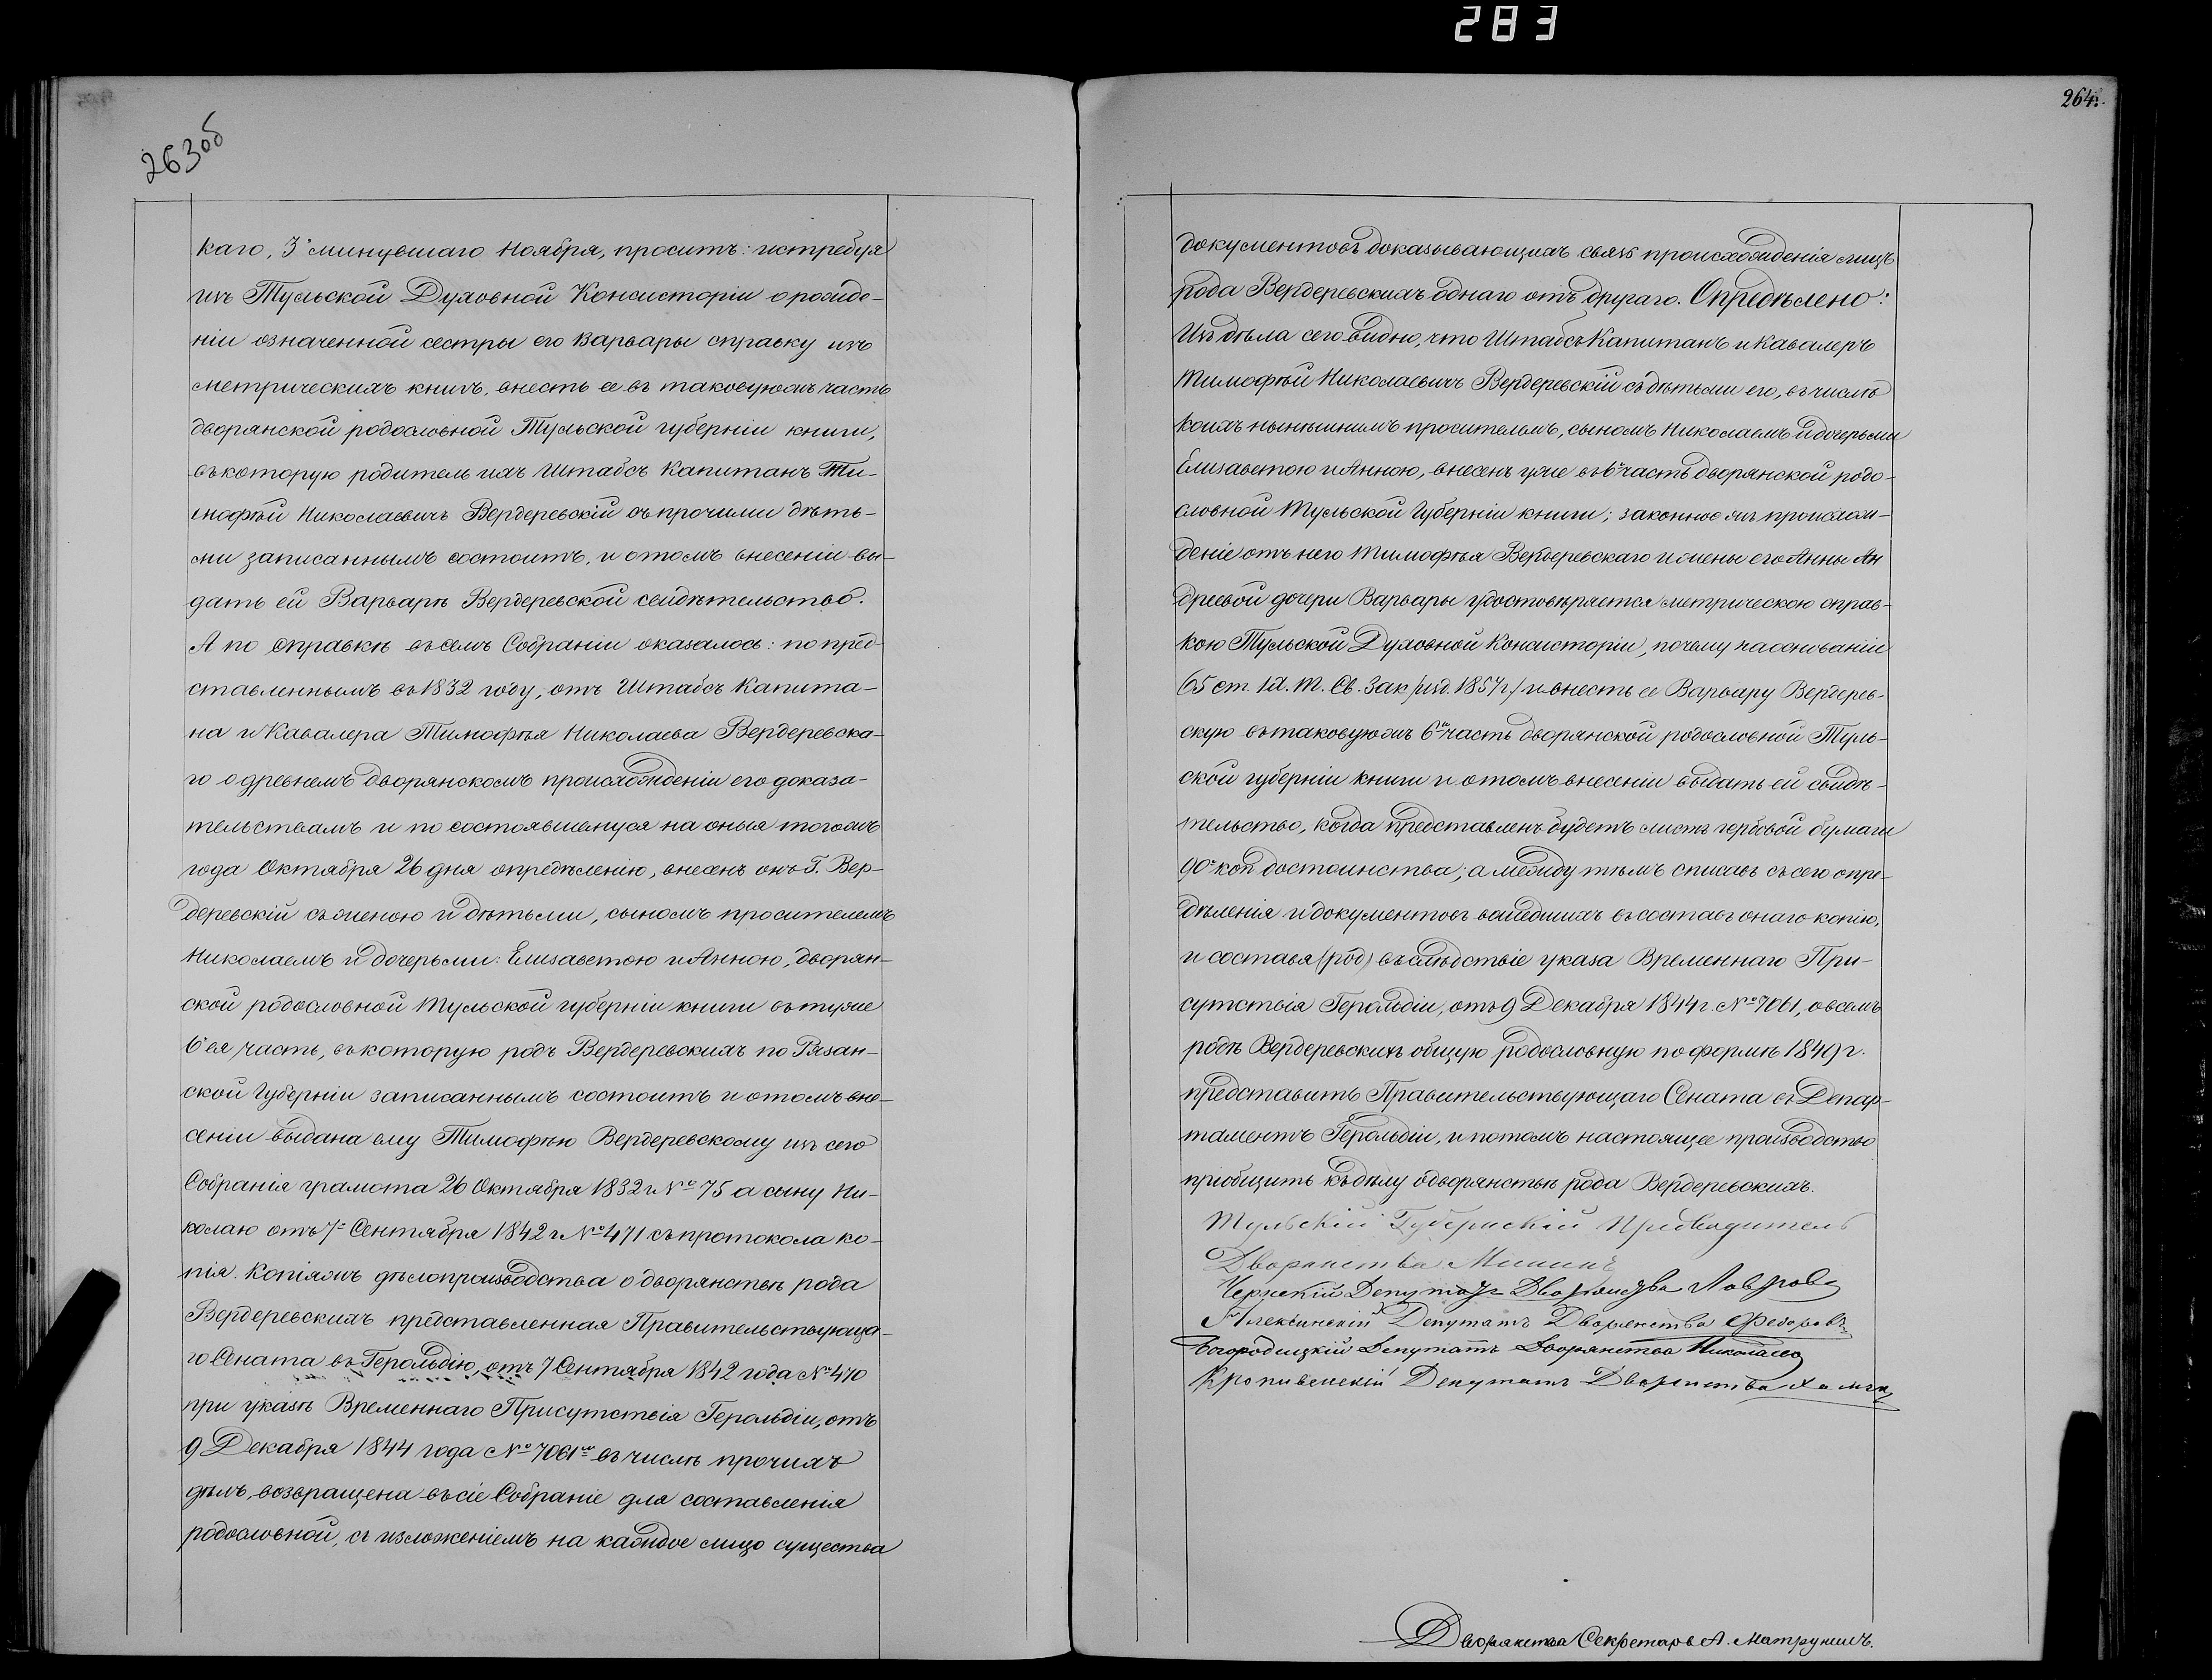 283
263об
264.
каго, 3го минувшаго Ноября, проситъ: истребуя
изъ Тульской Духовной Консисторіи о рожде-
ніи означенной сестры его Варвары справку изъ
метрическихъ книгъ, внесть ее въ таковуюжъ часть
дворянской родословной Тульской губерніи книги,
въ которую родитель ихъ Штабсъ Капитанъ Ти-
мофѣй Николаевичъ Вердеревскій съ прочими дѣть-
ми записаннымъ состоитъ, и о томъ внесеніи вы-
дать ей Варварѣ Вердеревской свидѣтельство.
А по справкѣ въ семъ Собраніи оказалось: по пред-
ставленнымъ въ 1832 году, отъ Штабсъ Капита-
на и Кавалера Тимофѣя Николаева Вердеревска-
го о древнемъ дворянскомъ происхожденіи его доказа-
тельствамъ и по состоявшемуся на оныя тогожъ
года Октября 26 дня опредѣленію, внесенъ онъ Г. Вер-
деревскій съ женою и дѣтьми, сыномъ просителемъ
Николаемъ и дочерьми: Елисаветою и Анною, дворян-
ской родословной Тульской губерніи книги въ туже
6ея часть, въ которую родъ Вердеревскихъ по Рязан-
ской Губерніи записаннымъ состоитъ и о томъ вне-
сеніи выдана ему Тимофѣю Вердеревскому изъ сего
Собранія грамота 26 Октября 1832 г № 75 а сыну Ни-
колаю отъ 7 Сентября 1842 г № 471 съ протокола ко-
пія. Копіяжъ дѣлопроизводства о дворянствѣ рода
Вердеревскихъ представленная Правительствующа-
го Сената въ Герольдію, отъ 7 Сентября 1842 года № 470
при указѣ Временнаго Присутствія Герольдіи, отъ
9 Декабря 1844 года № 7061м въ числѣ прочихъ
дѣлъ, возвращена въ сіе Собраніе для составленія
родословной, съ изложеніемъ на каждое лицо существа
документовъ доказывающихъ связь происхожденія лицъ
рода Вердеревскихъ однаго отъ другаго. Опредѣлено:
Изъ дѣла сего видно, что Штабсъ Капитанъ и Кавалеръ
Тимофѣй Николаевичъ Вердеревскій съ дѣтьми его, въ числѣ
коихъ нынѣшнимъ просителемъ, сыномъ Николаемъ и дочерьми
Елисаветою и Анною, внесенъ уже въ 6ю часть дворянской родо-
словной Тульской Губерніи книги; законное жъ происхож-
деніе отъ него Тимофѣя Вердеревскаго и жены его Анны Ан
дреевой дочери Варвары удостовѣряется метрическою справ-
кою Тульской Духовной Консисторіи, почему на основаніи
65 ст. IX. Т. Св. Зак /изд. 1857 г/ и внесть ее Варвару Вердерев-
скую въ таковуюжъ 6ю часть дворянской родословной Туль-
ской губерніи книги и о томъ внесеніи выдать ей свидѣ-
тельство, когда представленъ будетъ листъ гербовой бумаги
90 коп достоинства; а между тѣмъ списавъ съ сего опре-
дѣленія и документовъ вошедшихъ въ составъ онаго копію,
и составя (род) въ слѣдствіе указа Временнаго При-
сутствія Герольдіи, отъ 9 Декабря 1844 г. № 7061, о всемъ
родѣ Вердеревскихъ общую родословную по формѣ 1849 г.
представить Правительствующаго Сената въ Депар-
таментъ Герольдіи, и потомъ настоящее производство
пріобщить къ дѣлу о дворянствѣ рода Вердеревскихъ.
Тульскій Губернскій Предводитель
Дворянства Мининъ
Чернскій Депутатъ Дворянства Лавровъ
Алексинскій Депутатъ Дворянства Федоровъ
Богородицкій Депутатъ Дворянства Николаевъ
Крапивенскій Депутатъ Дворянства
Дворянства Секретарь А. Матрунинъ.